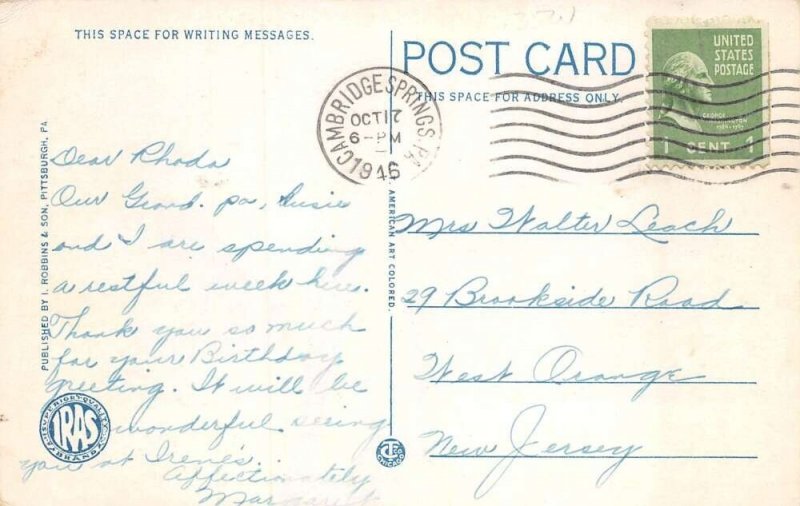 THIS SPACE FOR WRITING MESSAGES.
POST CARD
THIS SPACE FOR ADDRESS ONLY.
UNITED
STATES
POSTAGE
GEORGE
WASHINGTON
1 CENT 1
CAMBRIDGE SPRINGS, PA.
OCT 17
6-PM
1946
Dear Rhoda
Our Grand. pa, Susie
and I are spending
a restful week here.
Thank you so much
for your Birthday
greeting. It will be
wonderful seeing
you at Irene's.
Affectionately
Mrs Walter Leach
29 Brookside Road
West Orange
New Jersey
PUBLISHED BY I. ROBBINS & SON, PITTSBURGH, PA
AMERICAN ART COLORED.
SUPERIOR QUALITY
IRAS
BRAND
CHICAGO